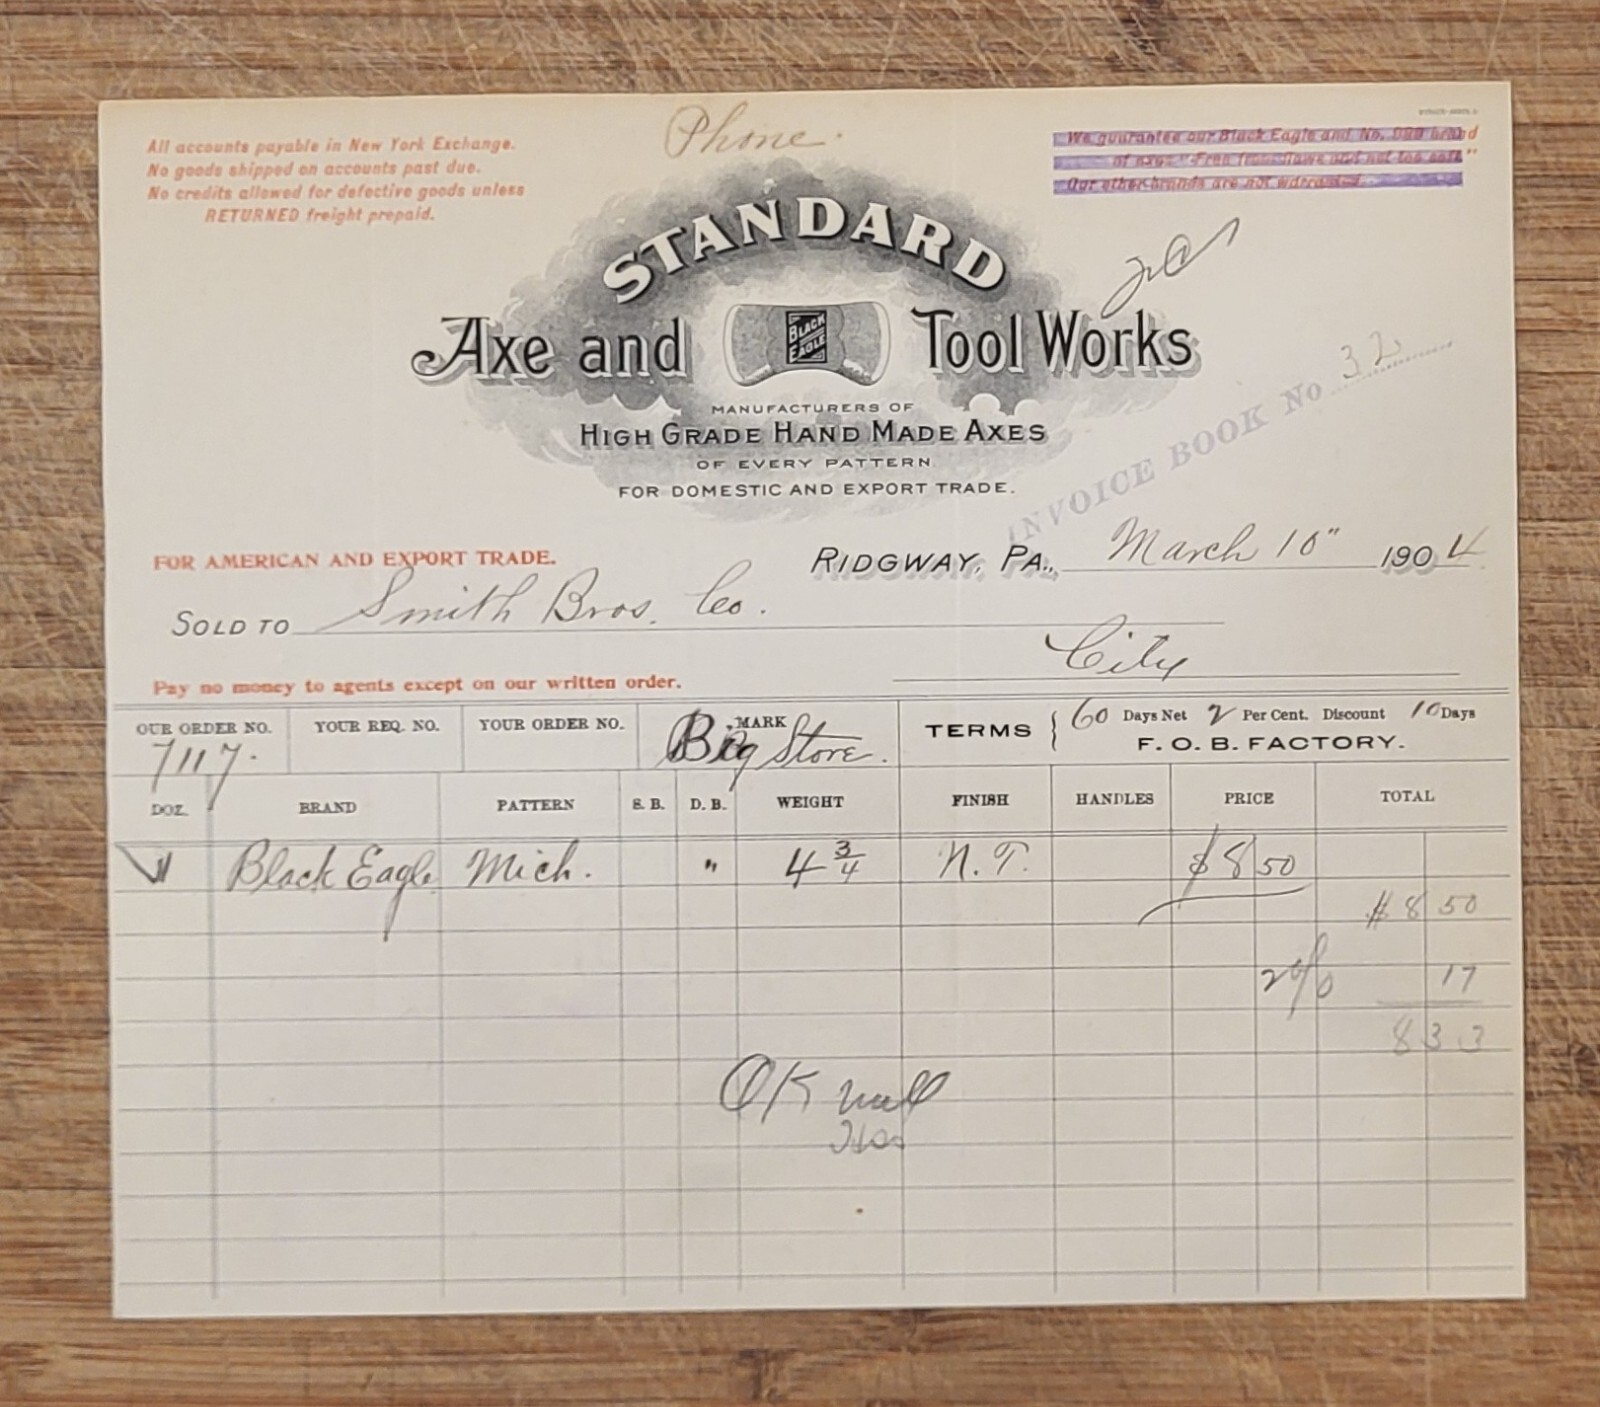 Phone.
All accounts payable in New York Exchange.
No goods shipped on accounts past due.
No credits allowed for defective goods unless
RETURNED freight prepaid.
We guarantee our Black Eagle and No. brand
of axes "Free from flaws and not too soft"
Our other brands are not warranted.
STANDARD
Axe and Tool Works
BLACK EAGLE
MANUFACTURERS OF
HIGH GRADE HAND MADE AXES
OF EVERY PATTERN
FOR DOMESTIC AND EXPORT TRADE.
INVOICE BOOK No 32
FOR AMERICAN AND EXPORT TRADE.
RIDGWAY, PA., March 10" 1904
SOLD TO Smith Bros. Co.
City
Pay no money to agents except on our written order.
OUR ORDER NO. YOUR REQ. NO. YOUR ORDER NO. MARK TERMS { 60 Days Net 2 Per Cent. Discount 10 Days
7117. Big Store. F. O. B. FACTORY.
DOZ. BRAND PATTERN S. B. D. B. WEIGHT FINISH HANDLES PRICE TOTAL
Black Eagle Mich. " 4 3/4 N. T. $8 50
$8 50
2% 17
8 33
OK